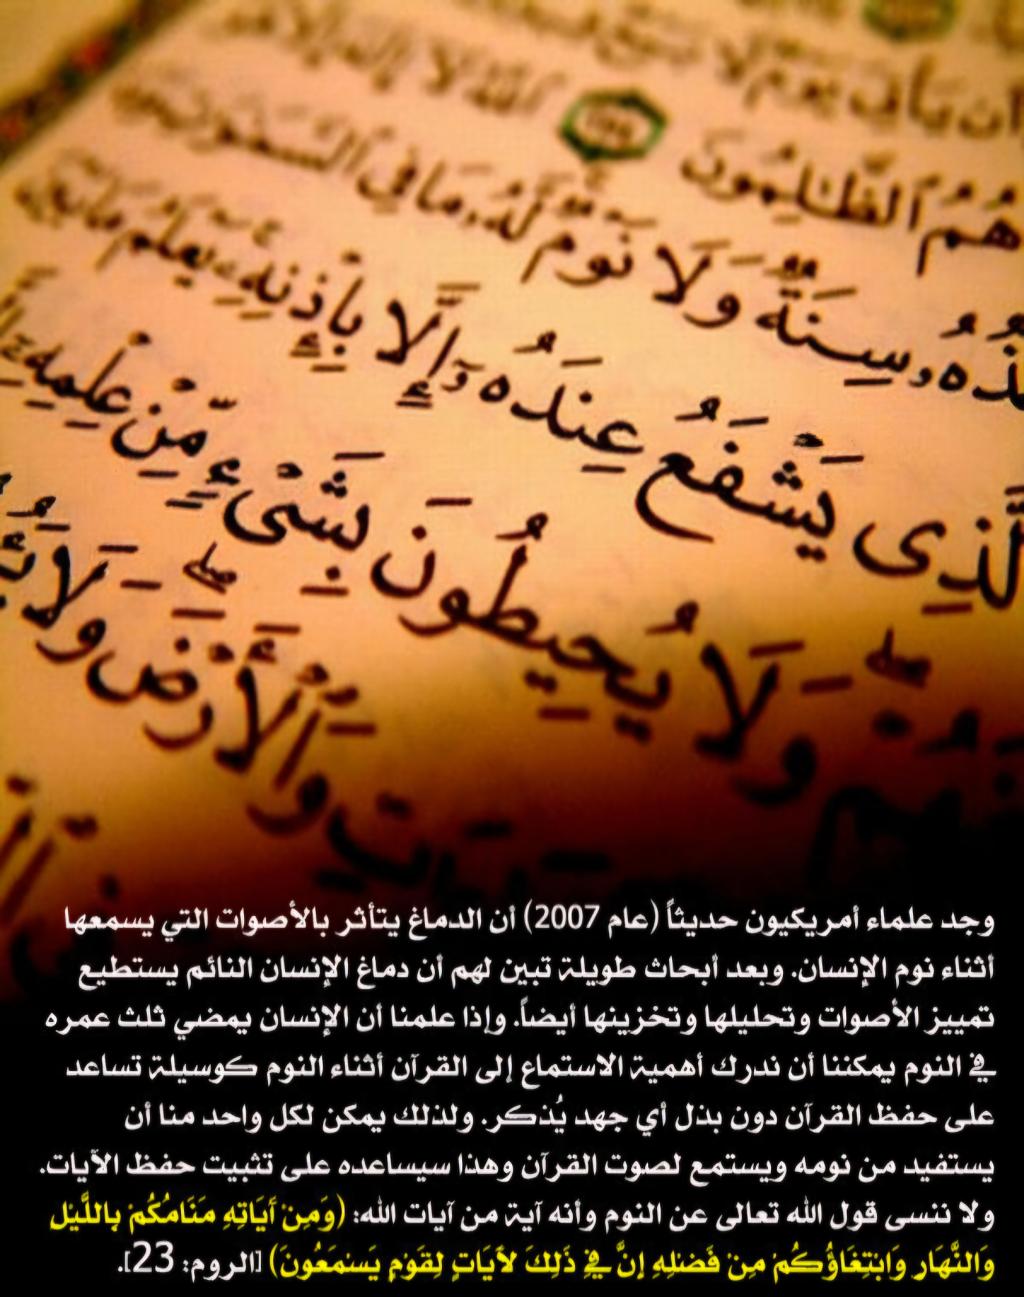 أن يأتى يوم لا بيع
هُمُ ٱلظَّـٰلِمُونَ ٱللَّهُ لَآ إِلَـٰهَ إِلَّا
سِنَةٌ وَلَا نَوْمٌ لَّهُۥ مَا فِى ٱلسَّمَـٰوَٰتِ
لَّذِى يَشْفَعُ عِندَهُۥٓ إِلَّا بِإِذْنِهِۦ يَعْلَمُ مَا بَيْنَ
وَلَا يُحِيطُونَ بِشَىْءٍ مِّنْ عِلْمِهِۦٓ
وَٱلْأَرْضَ وَلَا
وجد علماء أمريكيون حديثاً (عام 2007) أن الدماغ يتأثر بالأصوات التي يسمعها
أثناء نوم الإنسان. وبعد أبحاث طويلة تبين لهم أن دماغ الإنسان النائم يستطيع
تمييز الأصوات وتحليلها وتخزينها أيضاً. وإذا علمنا أن الإنسان يمضي ثلث عمره
في النوم يمكننا أن ندرك أهمية الاستماع إلى القرآن أثناء النوم كوسيلة تساعد
على حفظ القرآن دون بذل أي جهد يُذكر. ولذلك يمكن لكل واحد منا أن
يستفيد من نومه ويستمع لصوت القرآن وهذا سيساعده على تثبيت حفظ الآيات.
ولا ننسى قول الله تعالى عن النوم وأنه آية من آيات الله: (وَمِنْ آَيَاتِهِ مَنَامُكُمْ بِاللَّيْلِ
وَالنَّهَارِ وَابْتِغَاؤُكُمْ مِنْ فَضْلِهِ إِنَّ فِي ذَلِكَ لَآَيَاتٍ لِقَوْمٍ يَسْمَعُونَ) [الروم: 23].